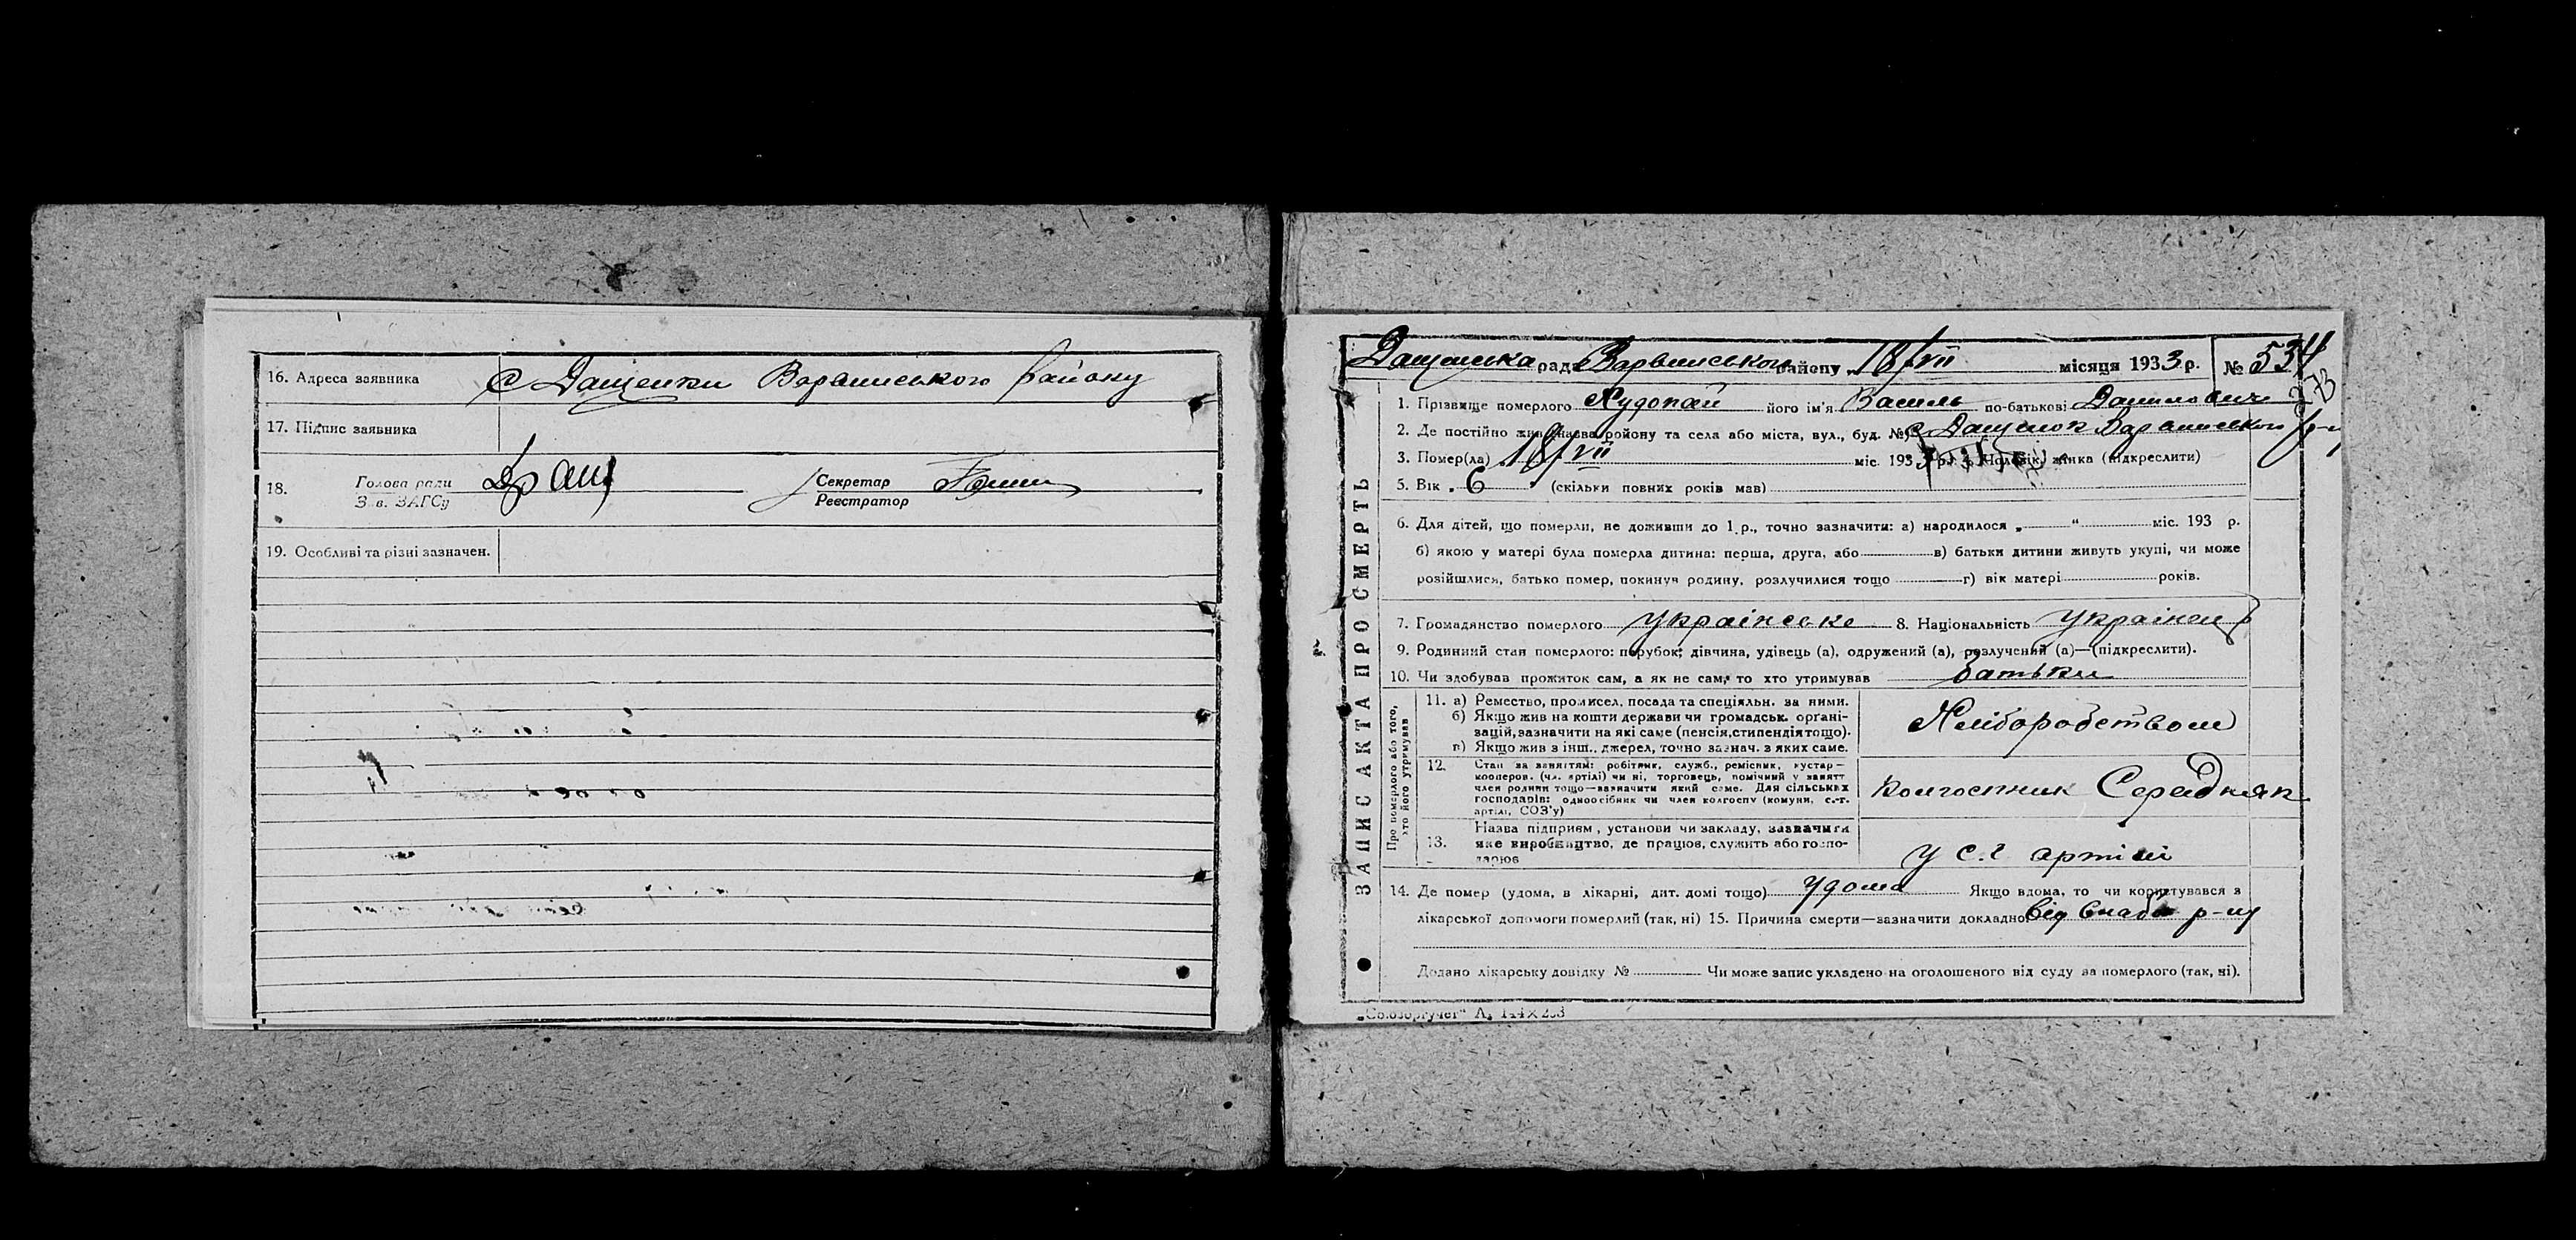 16. Адреса заявника с Дащенки Варвинського району
17. Підпис заявника
18. Голова ради Секретар
Зав. ЗАГСу Реєстратор
19. Особливі та різні зазначен.
ЗАПИС АКТА ПРО СМЕРТЬ
рада Варвинського району 18/VII місяця 1933 р. № 534
373
1. Прізвище померлого Худопай його ім'я Василь по-батькові Данилович
2. Де постійно жив (назва району та села або міста, вул., буд. №) с Дащенок Варвинського р-ну
3. Помер(ла) 18/VII міс. 1933 р. 4. Чоловік, жінка (підкреслити)
5. Вік 6 (скільки повних років мав)
6. Для дітей, що померли, не доживши до 1 р., точно зазначити: а) народилося „ “ міс. 193 р.
б) якою у матері була померла дитина: перша, друга, або в) батьки дитини живуть укупі, чи може
розійшлися, батько помер, покинув родину, розлучилися тощо г) вік матері років.
7. Громадянство померлого українське 8. Національність українец
9. Родинний стан померлого: парубок, дівчина, удівець (а), одружений (а), розлучений (а)—(підкреслити).
10. Чи здобував прожиток сам, а як не сам, то хто утримував батьки
Про померлого або того,
хто його утримував
11. а) Ремество, промисел, посада та спеціяльн. за ними.
б) Якщо жив на кошти держави чи громадськ. орґані-
зацій, зазначити на які саме (пенсія, стипендія тощо).
в) Якщо жив з інш. джерел, точно зазнач. з яких саме.
Хліборобством
12. Стан за заняттям: робітник, служб., ремісник, кустар—
кооперов. (чл. артілі) чи ні, торговець, помічний у занятт
член родини тощо—зазначити який саме. Для сільських
господарів: одноосібник чи член колгоспу (комуни, с.-г.
артілі, СОЗ'у)
колгоспник Середняк
13. Назва підприєм, установи чи закладу, зазначити
яке виробництво, де працюв, служить або госпо-
дарюв
у с.г артілі
14. Де помер (удома, в лікарні, дит. домі тощо) удома Якщо вдома, то чи користувався з
лікарської допомоги померлий (так, ні) 15. Причина смерти—зазначити докладно від
Додано лікарську довідку № Чи може запис укладено на оголошеного від суду за померлого (так, ні).
„Союзоргучет“ А, 144×203